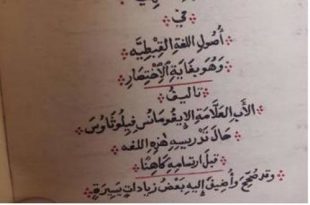 في
أُصُولِ اللُّغَةِ القِبْطِيَّه
وَهُوَ بِغَايَةِ الْاِخْتِصَارِ
تاليف
الأَبِ العَلَّامَةِ الإِيغُومَانُسِ فِيلُوتَاوُسَ
حَالَ تَدْرِيسِهِ هٰذِهِ اللُّغَه
قَبْلَ ارْتِسَامِهِ كَاهِنًا
وَقَدْ صُحِّحَ وَأُضِيفَ إِلَيْهِ بَعْضُ زِيَادَاتٍ يَسِيرَةٍ